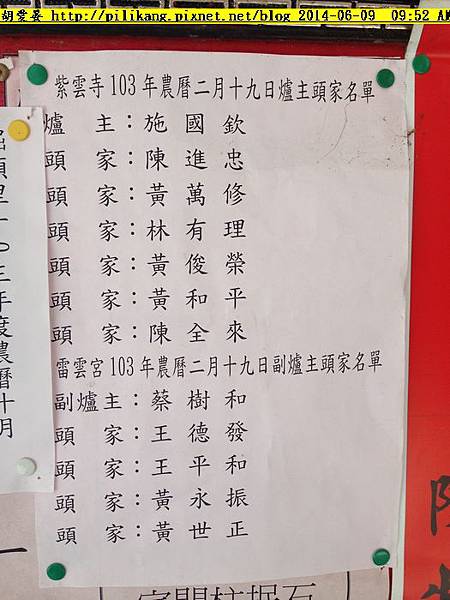 胡愛晏 http://pilikang.pixnet.net/blog 2014-06-09 09:52 AM
紫雲寺103年農曆二月十九日爐主頭家名單
爐 主：施國欽
頭 家：陳進忠
頭 家：黃萬修
頭 家：林有理
頭 家：黃俊榮
頭 家：黃和平
頭 家：陳全來
雷雲宮103年農曆二月十九日副爐主頭家名單
副爐主：蔡樹和
頭 家：王德發
頭 家：王平和
頭 家：黃永振
頭 家：黃世正
頭里一○三年度農曆十月